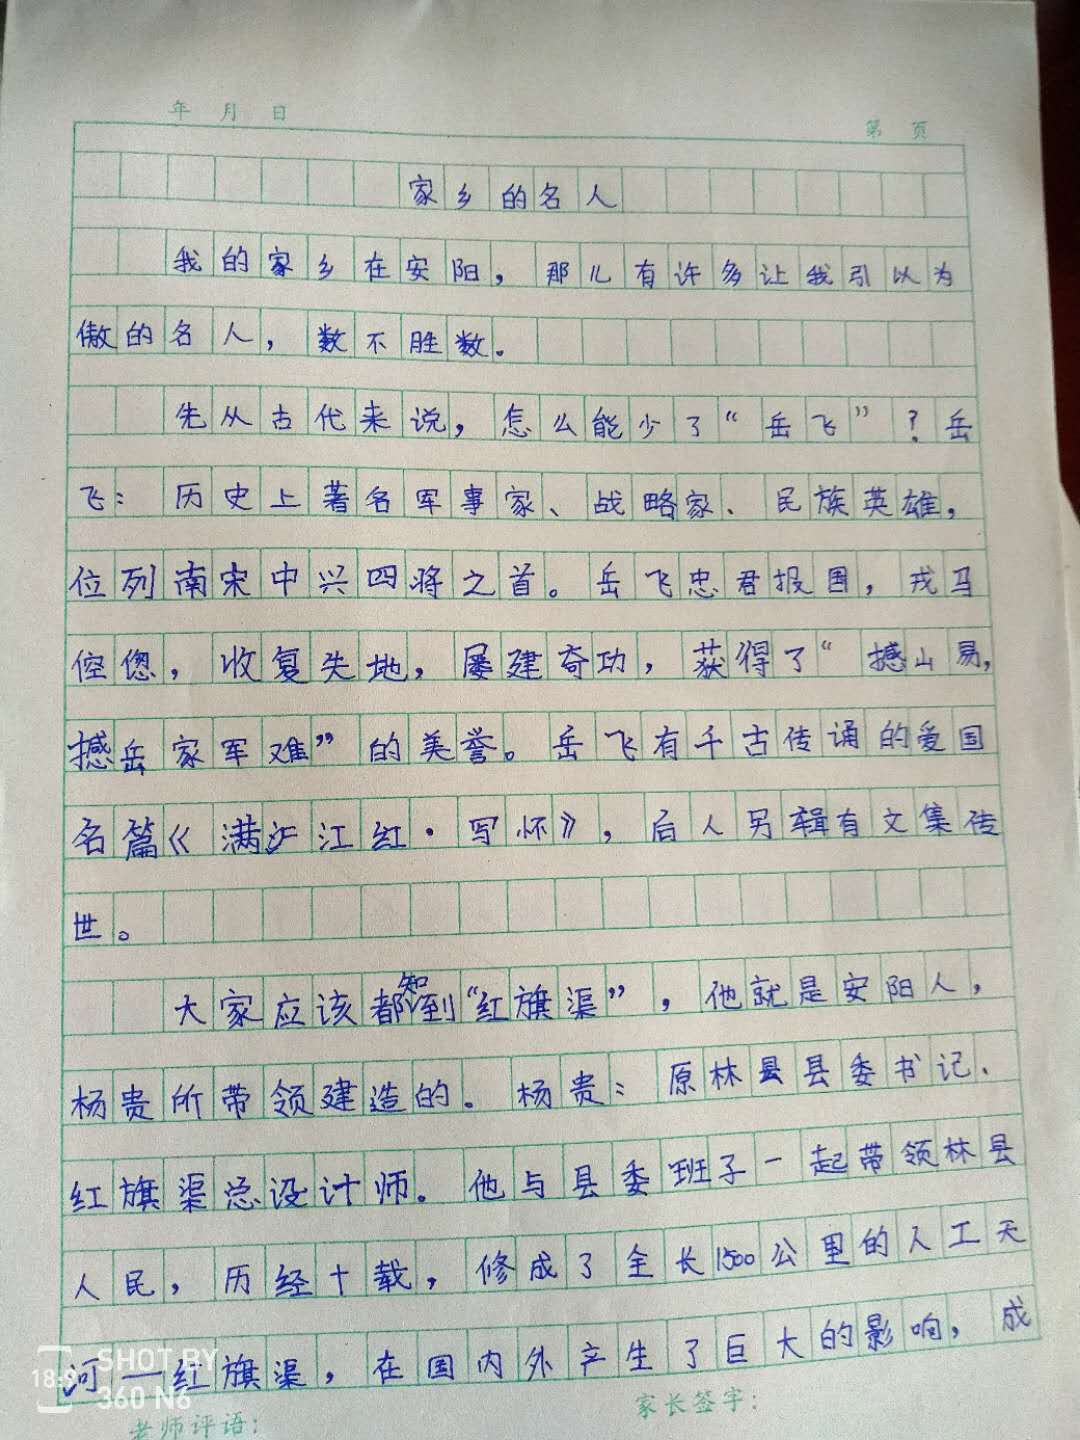 年 月 日
第 页
家乡的名人
我的家乡在安阳，那儿有许多让我引以为
傲的名人，数不胜数。
先从古代来说，怎么能少了“岳飞”？岳
飞：历史上著名军事家、战略家、民族英雄，
位列南宋中兴四将之首。岳飞忠君报国，戎马
倥偬，收复失地，屡建奇功，获得了“撼山易，
撼岳家军难”的美誉。岳飞有千古传诵的爱国
名篇《满江红·写怀》，后人另辑有文集传
世。
大家应该都知到“红旗渠”，他就是安阳人，
杨贵所带领建造的。杨贵：原林县县委书记、
红旗渠总设计师。他与县委班子一起带领林县
人民，历经十载，修成了全长1500公里的人工天
河一红旗渠，在国内外产生了巨大的影响，成
SHOT BY
360 N6
老师评语：
家长签字：